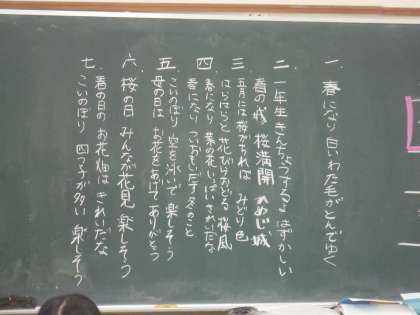 一、春になり 白いわた毛が とんでゆく
二、一年生 きんちょうするよ はずかしい
春の城 桜満開 ひめじ城
三、五月には 桜がちれば みどり色
はらはらと 花びらおどる 桜風
四、春になり 菜の花いっぱい きれいだな
春になり ついおもいだす 冬のこと
五、こいのぼり 空を泳いで 楽しそう
母の日は お花をあげて ありがとう
六、桜の日 みんなが花見 楽しそう
春の日の お花畑は きれいだな
七、こいのぼり 四つ子が多い 楽しそう